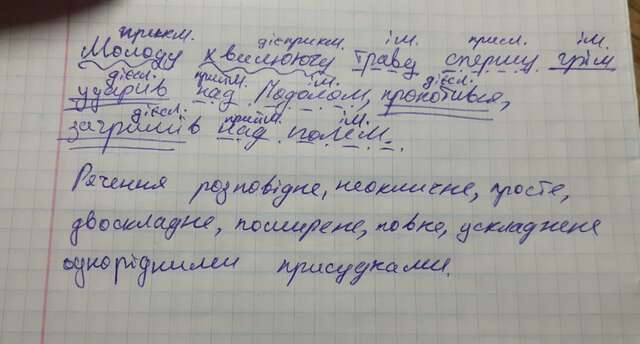 прикм. дієприкм. ім. присл. ім.
Молоду хвилюючу траву спершу грім
дієсл. прийм. ім. дієсл.
ударив над Подолом, прокотився,
дієсл. прийм. ім.
загримів над полем.
Речення розповідне, неокличне, просте,
двоскладне, поширене, повне, ускладнене
однорідними присудками.